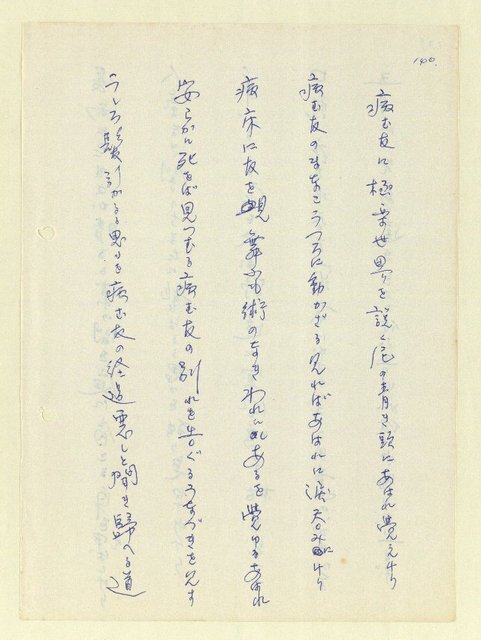 140.
病む友に極楽世界を説く尼の青き頭にあはれ覚えけり
病む友のまなこうつろに動かざる見ればあはれに涙呑みにけり
病床に友を見舞ふも術のなきわれにあるを覚ゆるあはれ
安らかに死をば見つむる病む友の別れを告ぐるうなづきを見す
うしろ髪引かるる思ひを病む友の経過悪しと聞き帰へる道